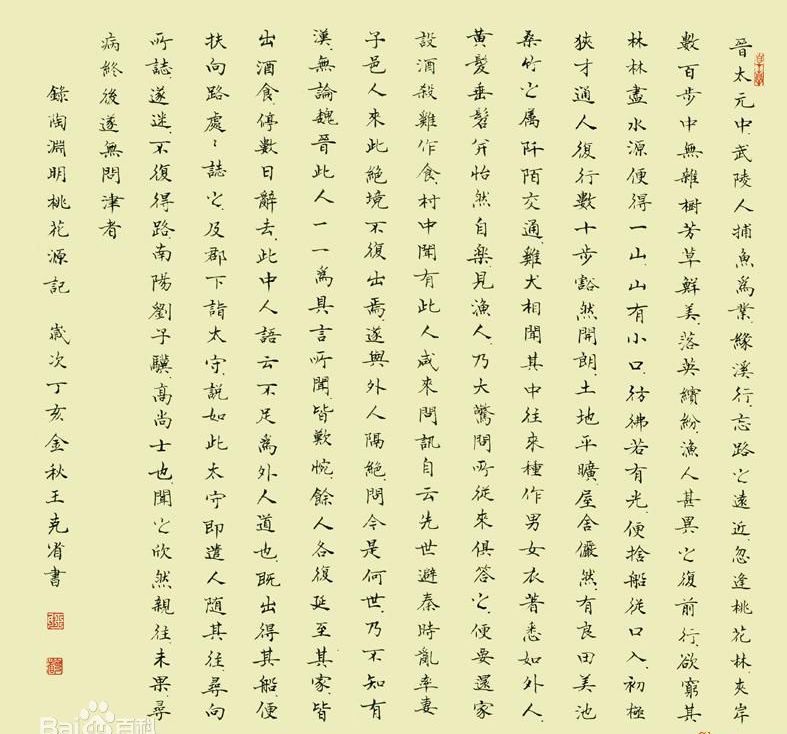 晉太元中武陵人捕魚為業緣溪行忘路之遠近忽逢桃花林夾岸
數百步中無雜樹芳草鮮美落英繽紛漁人甚異之復前行欲窮其
林林盡水源便得一山山有小口彷彿若有光便捨船從口入初極
狹才通人復行數十步豁然開朗土地平曠屋舍儼然有良田美池
桑竹之屬阡陌交通雞犬相聞其中往來種作男女衣著悉如外人
黃髮垂髫并怡然自樂見漁人乃大驚問所從來俱答之便要還家
設酒殺雞作食村中聞有此人咸來問訊自云先世避秦時亂率妻
子邑人來此絕境不復出焉遂與外人隔絕問今是何世乃不知有
漢無論魏晉此人一一為具言所聞皆歎惋餘人各復延至其家皆
出酒食停數日辭去此中人語云不足為外人道也既出得其船便
扶向路處〻誌之及郡下詣太守說如此太守即遣人隨其往尋向
所誌遂迷不復得路南陽劉子驥高尚士也聞之欣然親往未果尋
病終後遂無問津者
錄陶淵明桃花源記 歲次丁亥金秋王克省書
Bai百科